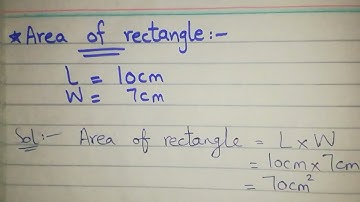 *Area of rectangle:-
L = 10cm
W = 7cm
Sol:- Area of rectangle = L x W
= 10cm x 7cm
= 70cm²